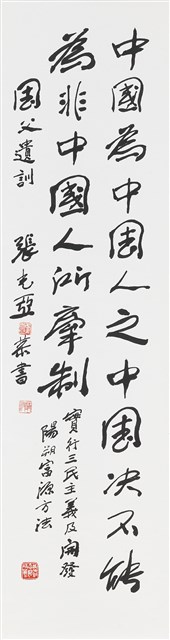 中國為中國人之中國决不能
為非中國人所牽制
實行三民主義及開發
陽朔富源方法
國父遺訓
張光亞
恭書